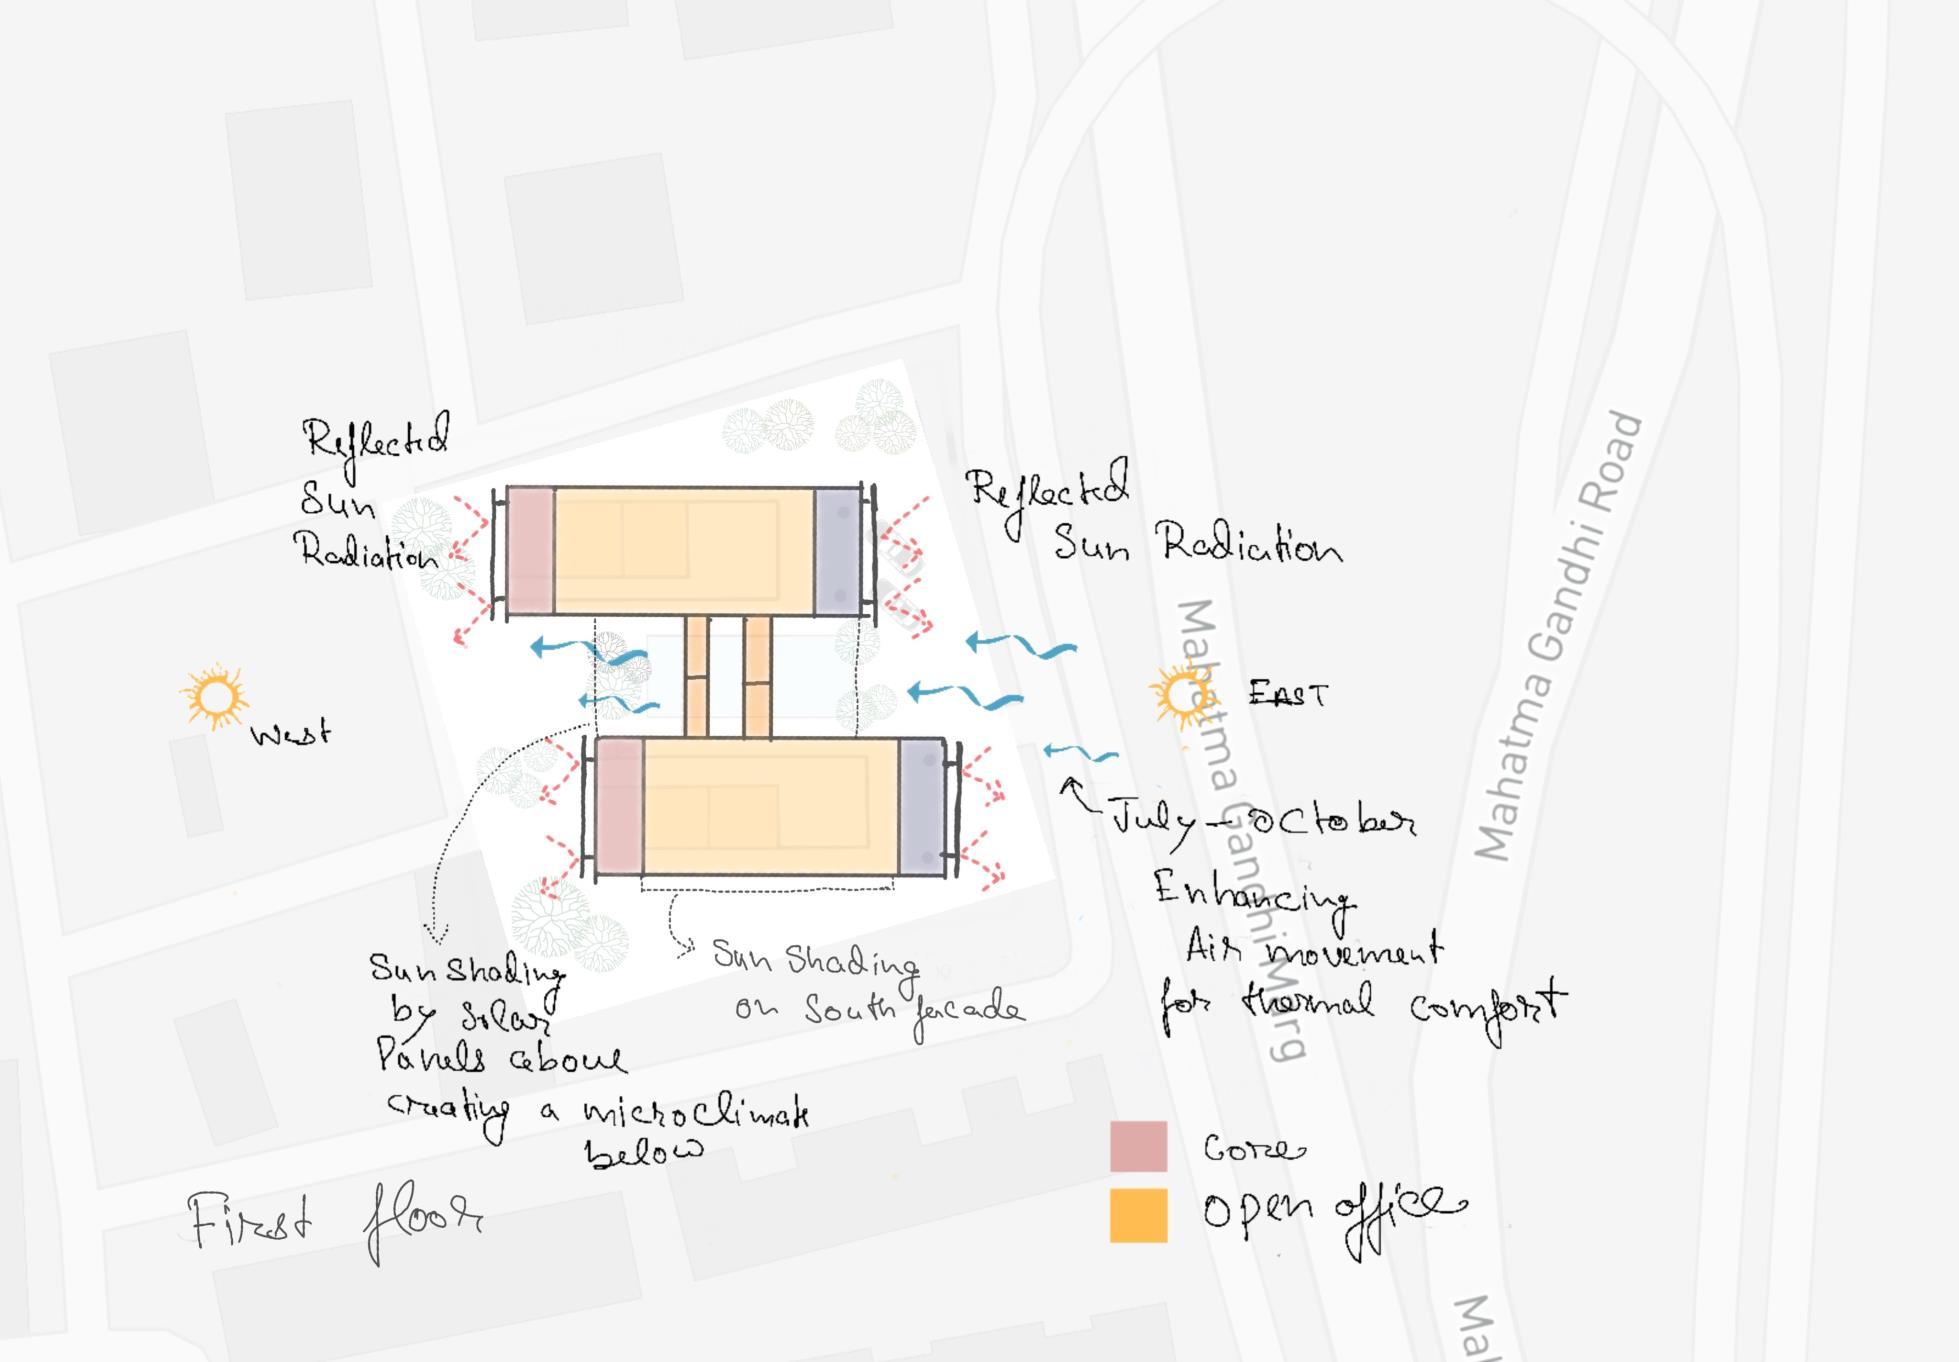 Reflected
Sun
Radiation
Reflected
Sun Radiation
West
EAST
July - October
Enhancing
Air movement
for thermal comfort
Sun Shading
by Solar
Panels above
creating a microclimate
below
Sun Shading
on South facade
First floor
Core
Open office
Mahatma Gandhi Marg
Mahatma Gandhi Road
Mah